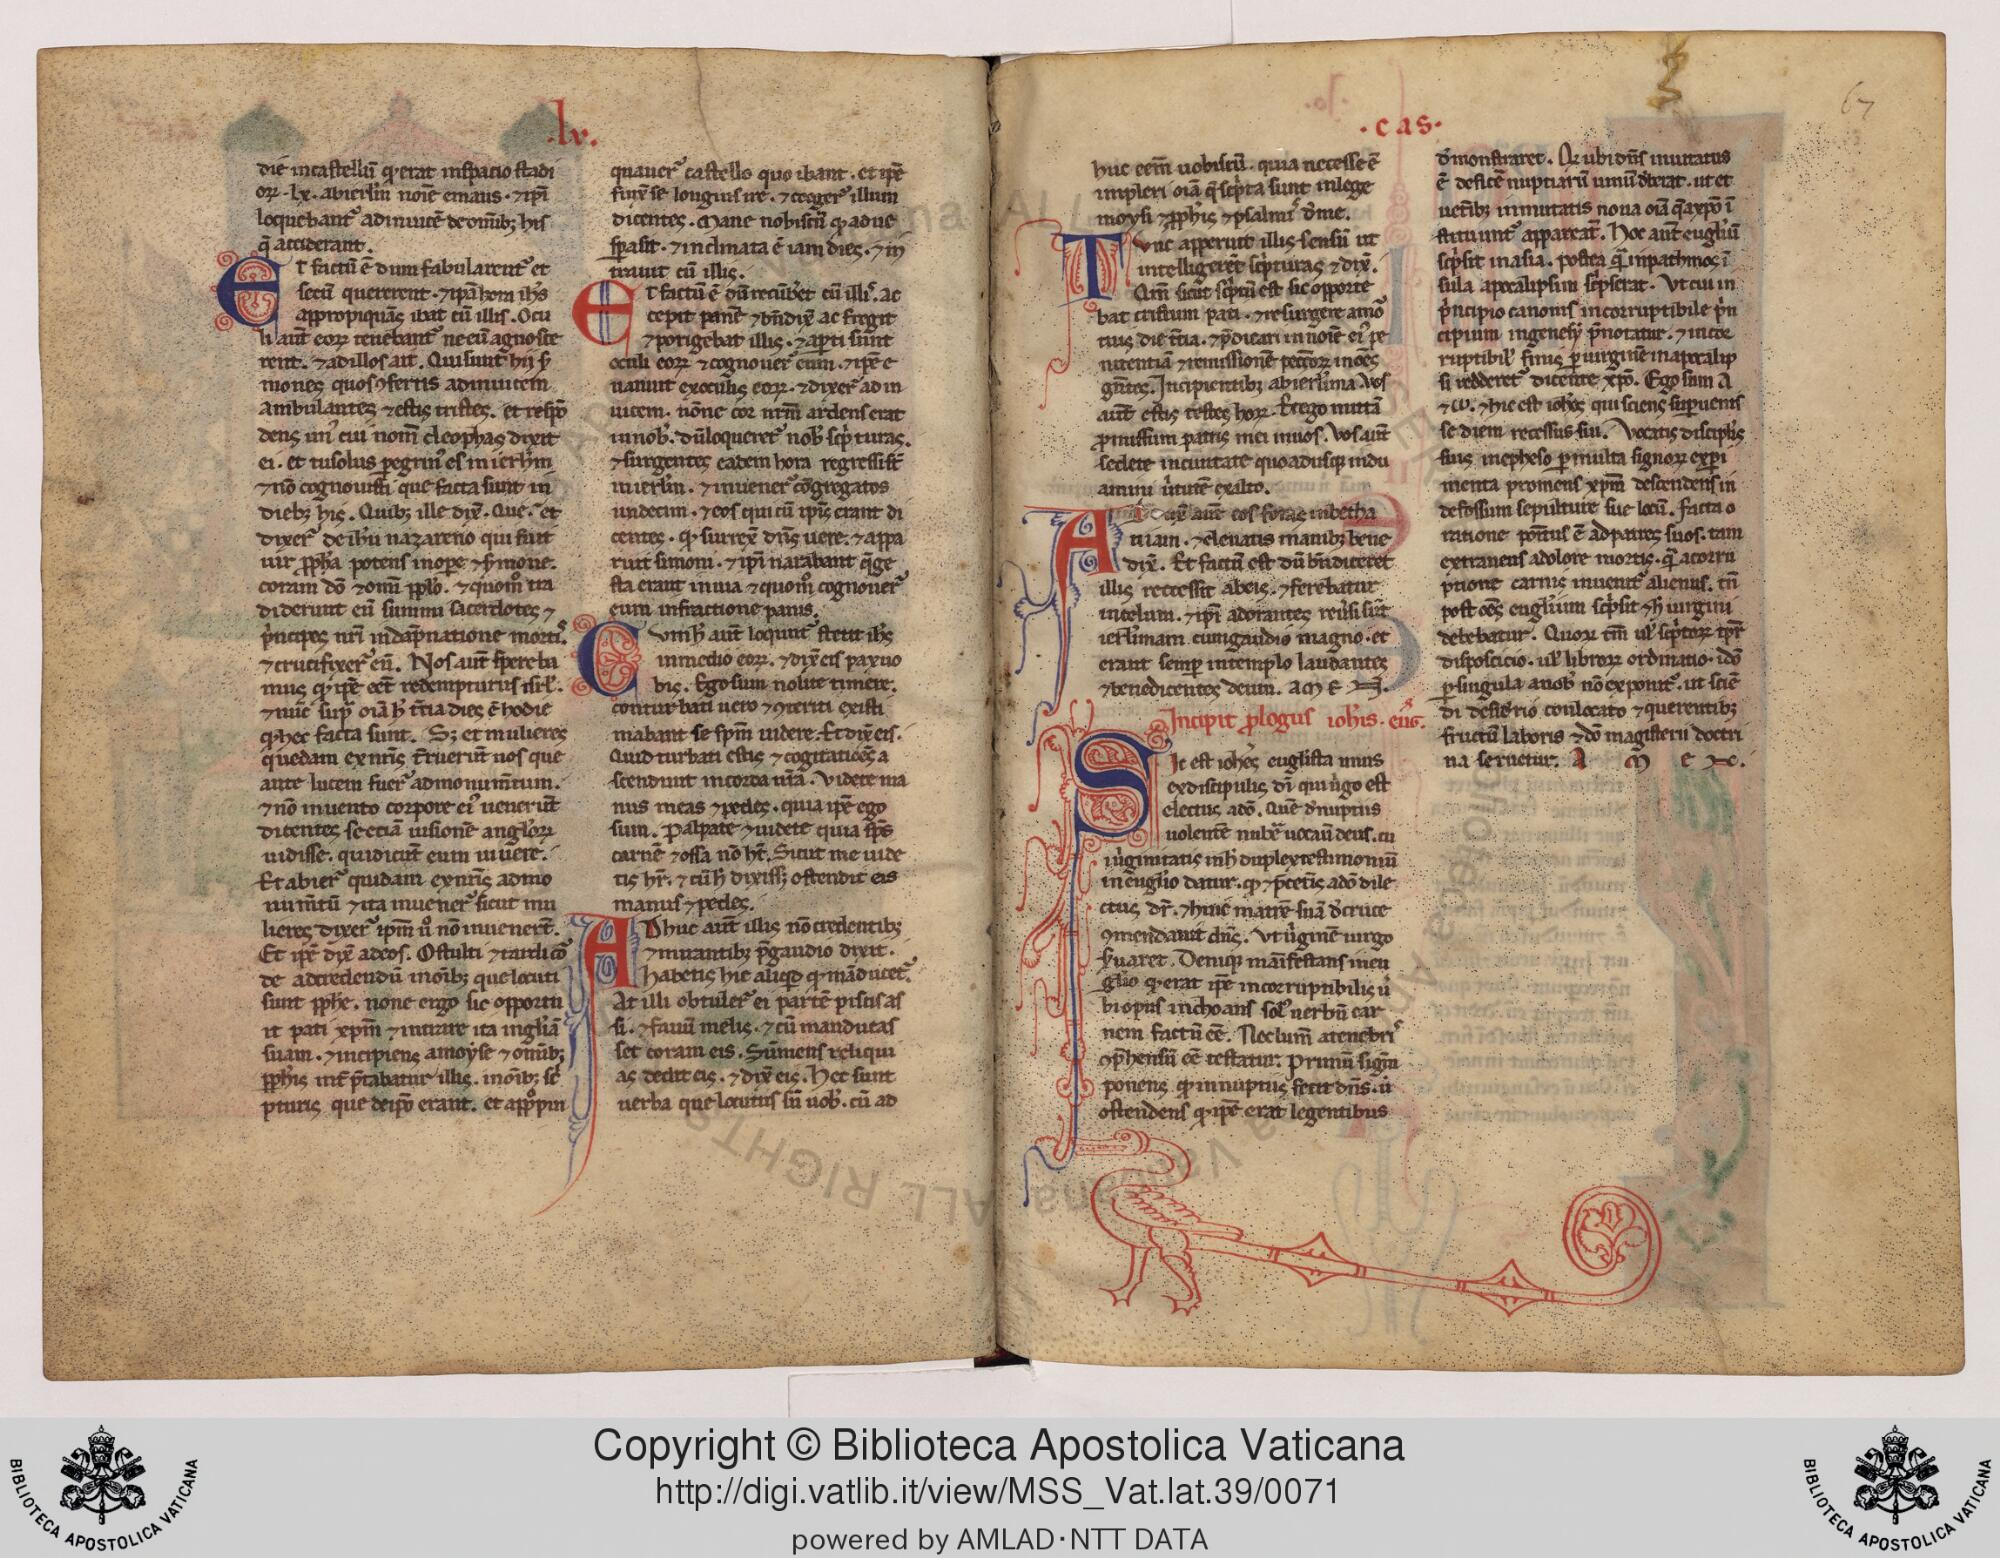 ·lv·
die in castellũ q̓ erat in spacio stadi
oꝝ ·lx· abierl̃m noĩe emaus · ⁊ ip̃i
loquebant̃ adinuicẽ de om̃ibꝫ his
q̃ acciderant.
Et factũ ẽ dum fabularent̃ et
secũ quererent · ⁊ ip̃e hom̃ ih̃s
appropiquãs ibat cũ illis. Ocu
li aut̃ eoꝝ tenebant̃ ne eũ agnosce
rent. ⁊ ad illos ait. Qui sunt hii s̃
mones quos ꝯfertis adinuicem
ambulantes ⁊ estis tristes. et respõ
dens un̓ cui nom̃ cleophas dixit
ei. et tu solus pegrin̓ es in ierl̃m
⁊ nõ cognouisti que facta sunt in
diebꝫ his. Quibꝫ ille dix̃. Que. et
dixer̃ de ih̃u nazareno qui fuit
uir ꝓph̃a potens in oꝑe ⁊ s̃mone.
coram dõ ⁊ om̃i ꝓplo. ⁊ quom̃o tra
diderunt eũ summi sacerdotes ⁊
p̃ncipes nr̃i in dãpnatione morti̓.
⁊ crucifixer̃ eũ. Nos aut̃ speraba
mus q̓ ip̃e eẽt redempturus isrl̃.
⁊ nũc sup̃ oĩa h̓ tr̃cia dies ẽ hodie
q̓ hec facta sunt. Sꝫ et mulieres
quedam ex nr̃is t̃ruerũt nos que
ante lucem fuer̃ ad monum̃tum.
⁊ nõ inuento corpore ei̓ uenerũt
dicentes se eciã uisionẽ angl̃oꝝ
uidisse. qui dicũt eum uiuere.
Et abier̃ quidam ex nr̃is ad mo
num̃tũ ⁊ ita inuener̃ sicut mu
lieres dixer̃ ip̃m ũ nõ inuenerũt.
Et ip̃e dix̃ ad eos. O stulti ⁊ tardi co᷒
de ad credendũ in oĩbꝫ que locuti
sunt ꝓph̃e. nonne ergo sic opportu
it pati xp̃m ⁊ intrare ita in gl̃iã
suam. ⁊ incipiens a moyse ⁊ om̃ibꝫ
ꝓph̃is int̃ p̃tabatur illis. in oĩbꝫ sc̃
pturis que de ip̃o erant. et app̃opin
quauer̃ castello quo ibant. et ip̃e
finx̃ se longius ire. ⁊ coeger̃ illum
dicentes. Mane nobiscũ q̓ adue
sp̃asit. ⁊ inclinata ẽ iam dies. ⁊ in
trauit cũ illis.
Et factũ ẽ dũ recũb̃et cũ illi̓. ac
cepit panẽ ⁊ bñdix̃ ac fregit
⁊ porigebat illis. ⁊ apti sunt
oculi eoꝝ ⁊ cognouer̃ eum. ⁊ ip̃e e
uanuit ex oculis eoꝝ. ⁊ dixer̃ ad in
uicem. nõne cor nr̃m ardens erat
in nob̓. dũ loqueret̃ nob̓ sc̃pturas.
⁊ surgentes eadem hora regressi st̃
in ierl̃m. ⁊ inuener̃ cõgregatos
undecim. ⁊ eos qui cũ ip̃is erant di
centes. q̓ surrex̃ dñs uere. ⁊ appa
ruit simoni. ⁊ ip̃i narabant q̃ ge
sta erant in uia ⁊ quom̃o cognouer̃
eum in fractione panis.
Cum h̓ aut̃ loqunt̃ stetit ih̃s
in medio eoꝝ. ⁊ dix̃ eis pax uo
bis. Ego sum nolite timere.
conturbati uero ⁊ ꝯterriti existi
mabant se sp̃m uidere. Et dix̃ eis.
Quid turbati estis ⁊ cogitationes a
scendunt in corda ur̃a. Videte ma
nus meas ⁊ pedes. quia ip̃e ego
sum. Palpate ⁊ uidete quia sp̃s
carnẽ ⁊ ossa nõ ht̃. Sicut me uide
tis hr̃e. ⁊ cũ h̓ dixissꝫ ostendit eis
manus ⁊ pedes.
Adhuc aut̃ illis nõ credentibꝫ
⁊ mirantibꝫ p̃ gaudio dixit.
Habetis hic aliq̓d q̓ mãducet̃.
At illi obtuler̃ ei partẽ piscis as
si. ⁊ fauũ mellis. ⁊ cũ manducas
set coram eis. Sũmens reliqui
as dedit eis. ⁊ dix̃ eis. Hec sunt
uerba que locutus sũ uob̓. cũ ad
67
·cas·
huc eem̃ uobiscũ. quia necesse ẽ
impleri oĩa q̃ sc̃pta sunt in lege
moysi ⁊ ꝓph̃is ⁊ psalmi̓ d̃ me.
Tunc apperuit illis sensũ ut
intelligerẽt sc̃pturas ⁊ dix̃.
Qm̃ sicut sc̃ptũ est sic opporte
bat cristum pati. ⁊ resurgere a mo᷒
tuis die tr̃cia. ⁊ p̃dicari in nõine ei̓ pe
nitentiã ⁊ remissionẽ pecc̃oꝝ in oẽs
gẽtes. Incipientibꝫ ab ierl̃ima. Vos
aut̃ estis testes hoꝝ. Et ego mittã
ꝓmissum patris mei in uos. Vos aut̃
sedete in ciuitate quo adusqꝫ indu
amini ũtute ex alto.
Aduxit aut̃ eos foras in betha
niam. ⁊ eleuatis manibꝫ bene
dix̃. Et factum est dũ bñdiceret
illis reccessit ab eis. ⁊ ferebatur
in celum. ⁊ ip̃i adorantes reũsi sũt
ierl̃imam cum gaudio magno. et
erant semp̃ in templo laudantes
⁊ benedicentes deum. AMEN.
Incipit ꝓlogus ioh̃is. eũg̃.
Sic est ioh̃es euglista unus
ex discipulis dĩ qui ũgo est
electus a dõ. Quẽ d̃ nuptiis
uolentẽ nub̃e uocauit deus. cu
i̓ ũginitatis in h̓ duplex testimoniũ
in euglio datur. q̓ ⁊ p̃ cet̃is a dõ dile
ctus dr̃. ⁊ huic matrẽ suã d̃ cruce
ꝯmendauit dñs. Vt ũginẽ uirgo
s̃uaret. Deniqꝫ manifestans in eu
glio q̓ erat ip̃e incorruptibilis ũ
bi opus inchoans sol̓ uerbũ car
nem factũ eẽ. Nec lum̃ a tenebri̓
ꝯp̃hensũ eẽ testatur. Primũ signũ
ponens q̓ in nuptiis fecit dñs. ũ
ostendens q̓ ip̃e erat legentibus
d̃monstraret. Q̓ ubi dñs inuitatus
ẽ deficẽ nuptiarũ uinũ d̃beat. ut et
uet̃ibꝫ inmutatis noua oĩa q̃ a xp̃o ĩ
stituunt̃ appareãt. Hoc aut̃ eugliũ
sc̃psit in asia. postea q̃ in pathmos ĩ
sula apocalipsim sc̃pserat. Vt cui in
p̃ncipio canonis incorruptibile p̃n
cipium in genesy p̃notatur. ⁊ incor
ruptibil̓ finis p uirginẽ in apocalip
si redderet̃ dicente xp̃o. Ego sum A
⁊ ω. ⁊ hic est ioh̃es qui sciens sup̃uenis
se diem recessus sui. Vocatis discipl̃is
suis in epheso p multa signoꝝ expi
menta promens xp̃m descendens in
defossum sepulture sue locũ. facta o
ratione põitus ẽ ad patres suos. tam
extraneus a dolore mortis. q̃ a corru
ptione carnis inuenit̃ alienus. tñ
post oẽs eugl̃ium sc̃psit ⁊ h̓ uirgini
debebatur. Quoꝝ tm̃ ul̓ sc̃ptoꝝ tp̃r̃
disposicio. ul̓ libroꝝ ordinatio. idõ
p singula a nob̓ nõ exponit̃. ut sciẽ
di desid̃rio conlocato ⁊ querentibꝫ
fructũ laboris ⁊ dõ magisterii doctri
na seruetur. A M E N.
Copyright © Biblioteca Apostolica Vaticana
http://digi.vatlib.it/view/MSS_Vat.lat.39/0071
powered by AMLAD·NTT DATA
BIBLIOTECA APOSTOLICA VATICANA
BIBLIOTECA APOSTOLICA VATICANA